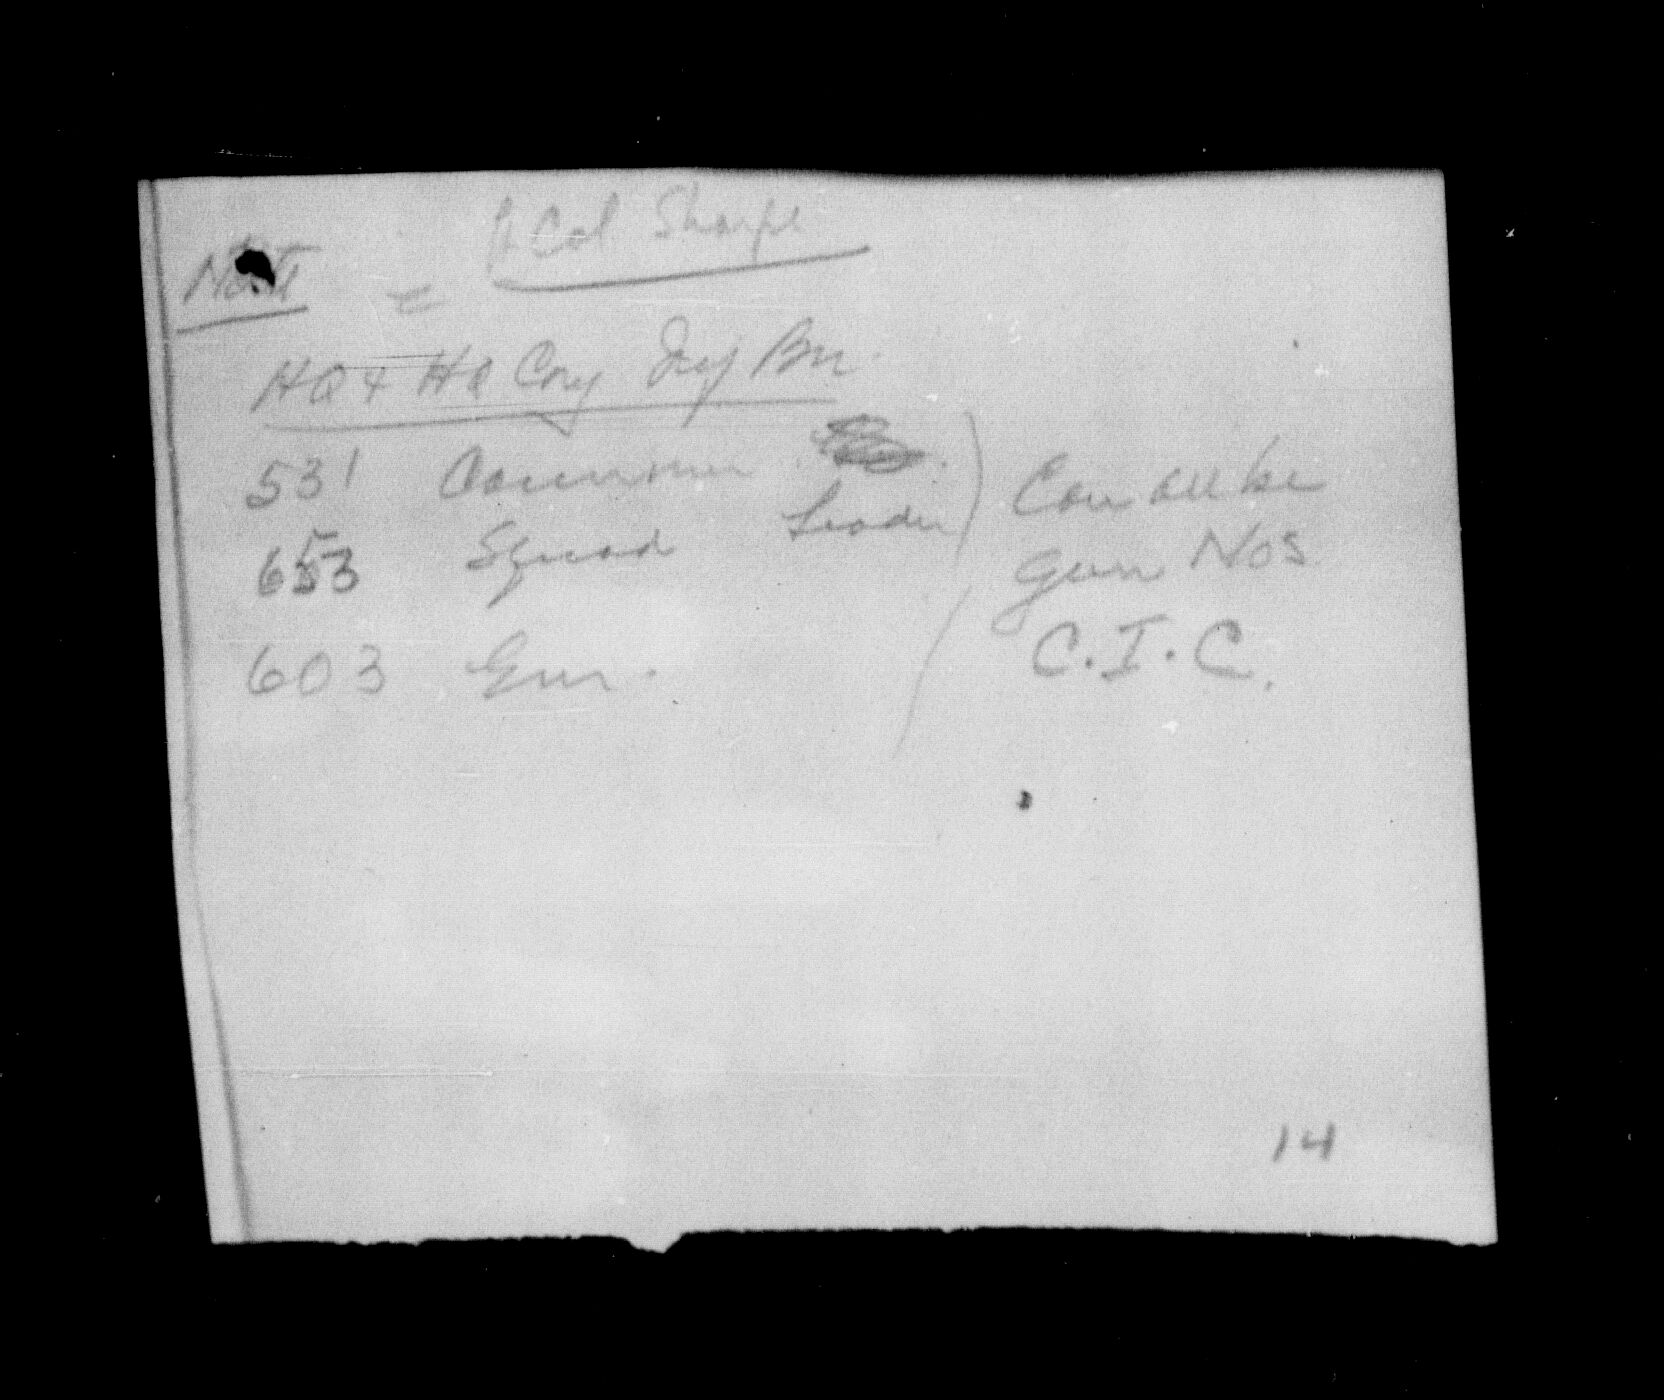 Note - Lt Col Sharpe
HQ + HQ Coy Inf Bn.
531 Cannoneer
653 Squad Leader
603 Gun.
Can all be
Gun Nos
C.I.C.
14